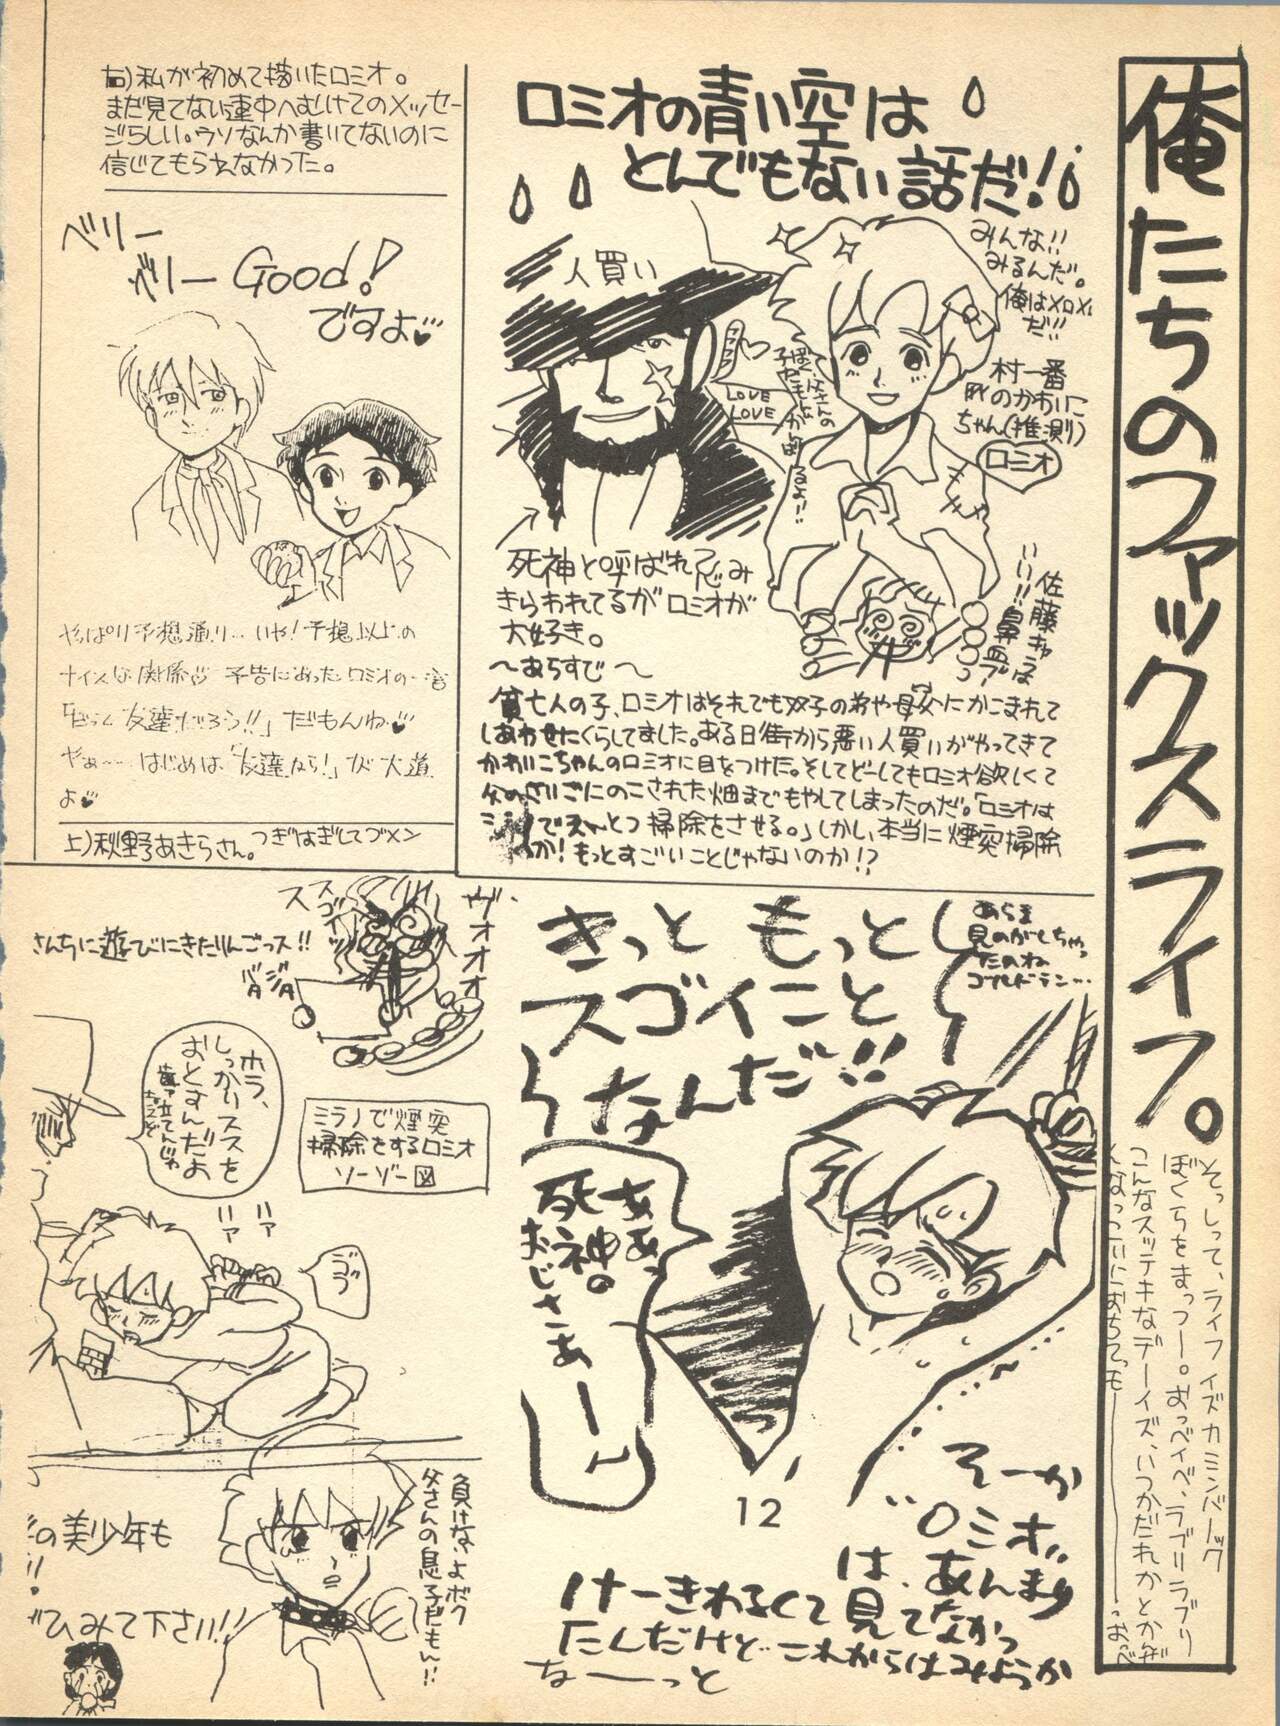 俺たちのファックスライフ。
そっしって、ライフ イズ カミンバーック
ぼくらをまっつー。おっベイベ、ラブリラブリ
こんなステキなデーイズ、いつかだれかとかぜ
ロミオの青い空は
とんでもない話だ!
みんな!!
みるんだ。
俺はメロメロ
だ!!
村一番
のかわいこ
ちゃん(推測)
ロミオ
人買い
LOVE
LOVE
佐藤キャラは
いい!!鼻血ブー
死神と呼ばれて忌み
きらわれてるがロミオが
大好き。
〜あらすじ〜
貧乏人の子、ロミオはそれでも双子の弟や母父にかこまれて
しあわせにくらしてました。ある日街から悪い人買いがやってきて
かわいこちゃんのロミオに目をつけた。そしてどーしてもロミオ欲しくて
父のさいごにのこされた畑までもやしてしまったのだ。「ロミオは
ミラノでえんとつ掃除をさせる。」しかし、本当に煙突掃除
か!もっとすごいことじゃないのか!?
右)私が初めて描いたロミオ。
まだ見てない連中へむけてのメッセー
ジらしい。ウソなんか書いてないのに
信じてもらえなかった。
ベリー
ベリーGood!
ですよ♥
やっぱり予想通り…いや!予想以上の
ナイスな関係♡ 予告にあったロミオの一言
「ぼくら友達だろう!!」だもんね♥
やぁ〜…はじめは、「友達から!」が大道
よ♥
上)秋野あきらさん。つぎはぎしてゴメン
あらま
見のがしちゃっ
たのね
ゴールドラン…
きっと もっと
スゴイこと
なんだ!!
ああっ
死神の
おじさまぁーっ
12
そーか
ロミオ…
は、あんまり
けーきわるくて見てなかっ
たんだけど これからはみようか
なーーっと
ヴオオオ
スゴイッス
バタ
ジタ
さんちに遊びにきたりんごっス!!
ホラ、
しっかりススを
おとすんだよ
歯ァ立てんじゃ
ねえぞ
ミラノで煙突
掃除をするロミオ
ソーゾー図
ハァ
ハァ
ゴブ
負けないよボク
父さんの息子だもん!!
の美少年も
ひみて下さい!!